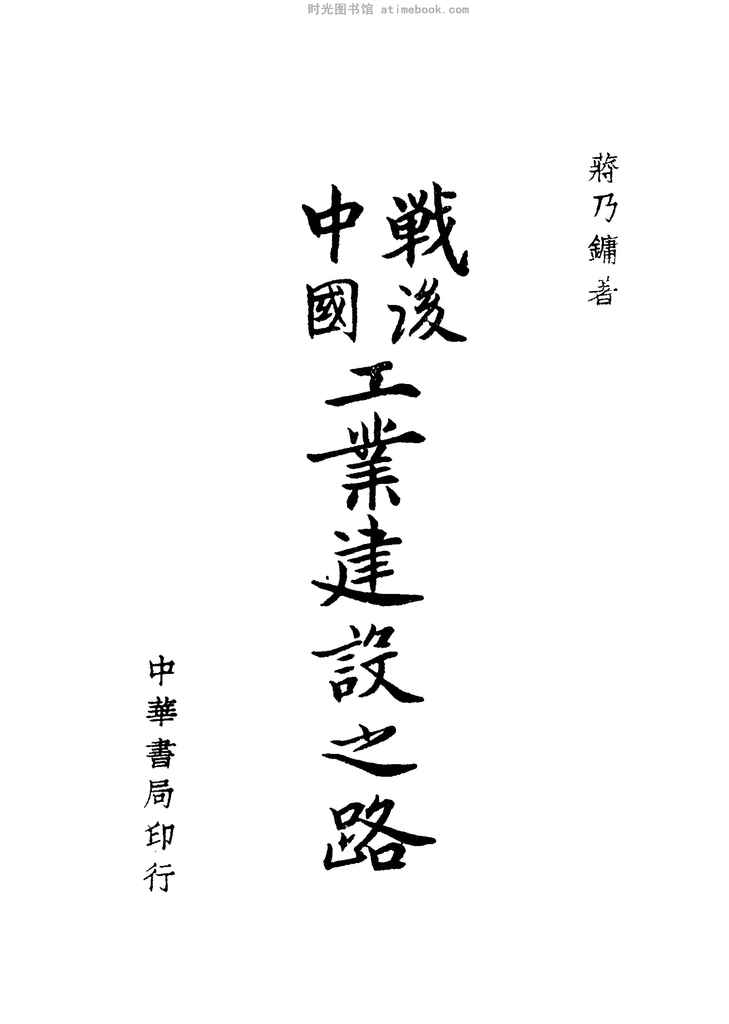 时光图书馆 atimebook.com
蔣乃鏞著
戰後
中國
工業建設之路
中華書局印行